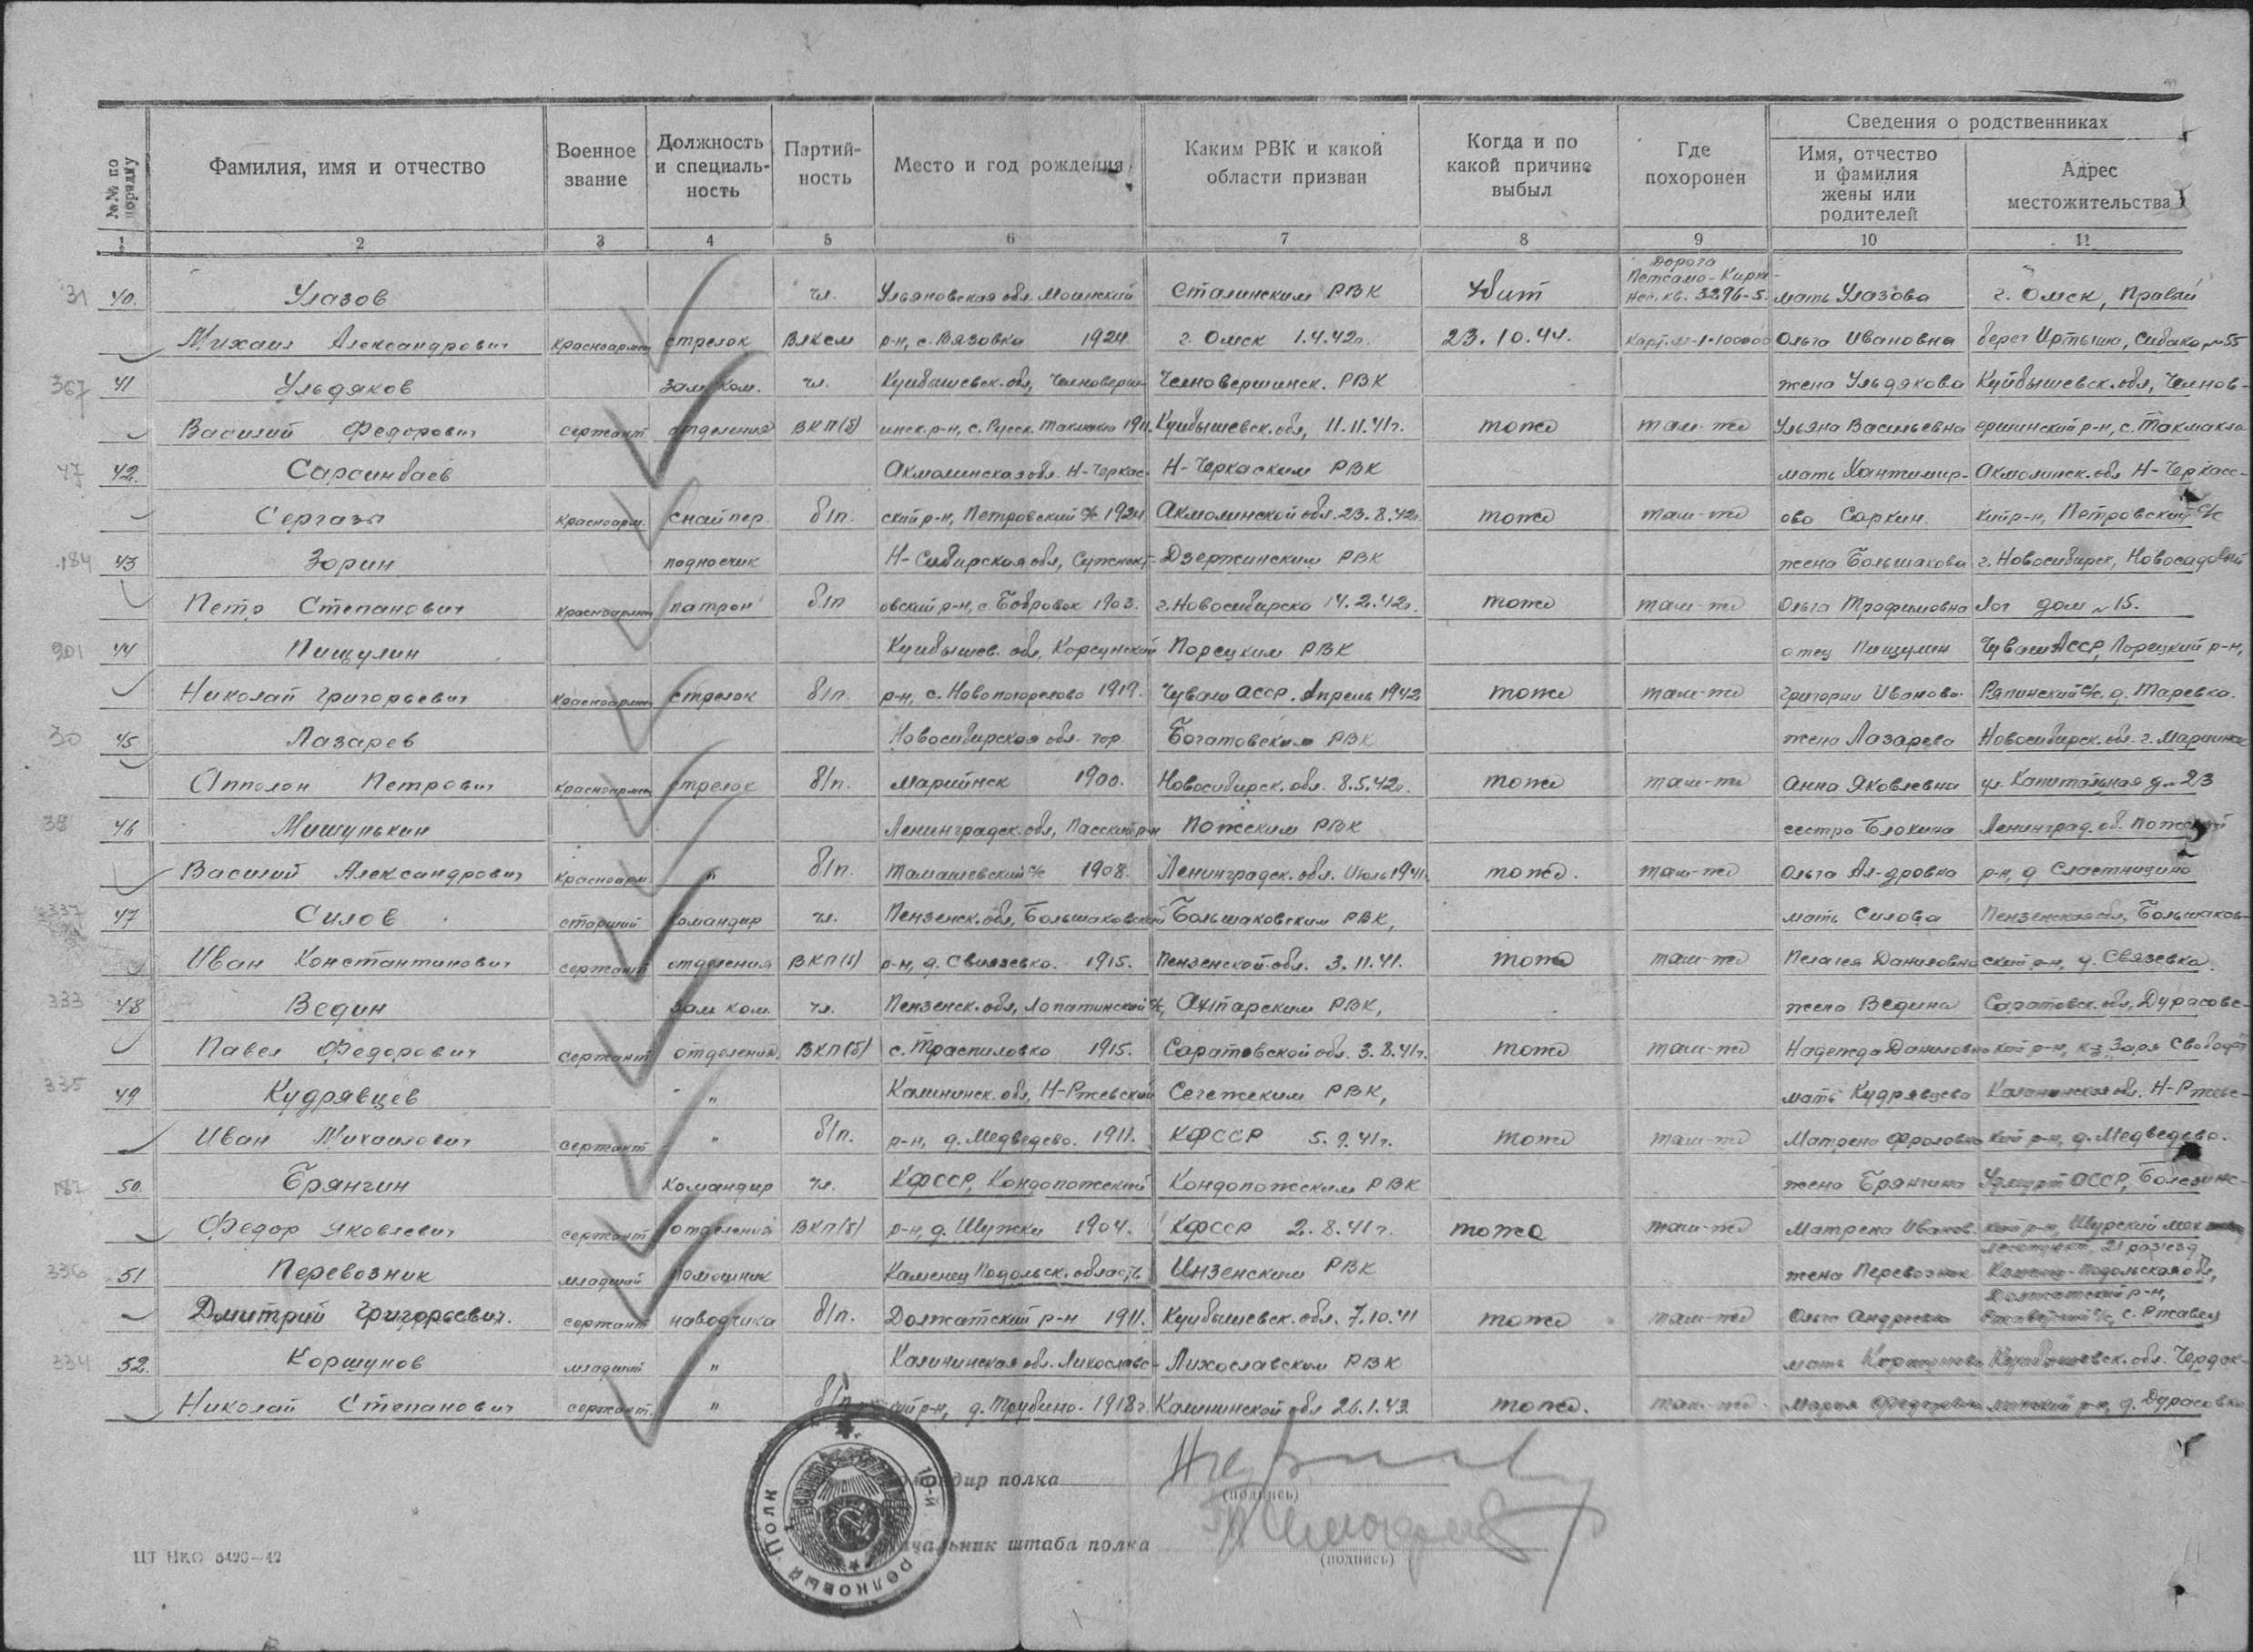 №№ по порядку
Фамилия, имя и отчество
Военное звание
Должность и специаль-ность
Партий-ность
Место и год рождения
Каким РВК и какой области призван
Когда и по какой причине выбыл
Где похоронен
Сведения о родственниках
Имя, отчество и фамилия жены или родителей
Адрес местожительства
1 2 3 4 5 6 7 8 9 10 11
Дорога
Петсамо-Кирке-
31 40. Улазов чл. Ульяновская обл. Моинский Сталинским РВК Убит кв. 3296-5. мать Улазова г. Омск, Правый
Михаил Александрович красноармеец стрелок ВЛКСМ р-н, с. Вязовка 1924 г. Омск 1.4.42г. 23.10.44. Ольга Ивановна берег Иртыша, №55
367 41 Ульдяков зам. ком. чл. Куйбышевск. обл, Челноверши- Челновершинск. РВК жена Ульдякова Куйбышевск. обл, Челнов-
Василий Федорович сержант отделения ВКП(б) инск. р-н, с. Русск. Такмакла 1911. Куйбышевск. обл, 11.11.41г. тоже там-же Ульяна Васильевна ершинский р-н, с. Такмакла
47 42. Сарсинбаев Акмолинская обл. Н-Черкас- Н-Черкаским РВК мать Хантимир- Акмолинск. обл Н-Черкасс-
Сергазы красноарм. снайпер. б/п. ский р-н, Петровский с/с 1924 Акмолинской обл. 23.8.42г. тоже там-же ова Саркин. кий р-н, Петровский с/с
184 43 Зорин подносчик Н-Сибирская обл, Дзержинским РВК жена Большакова г. Новосибирск, Новосадовый
Петр Степанович красноармеец патрон б/п овский р-н, с. Бобровок 1903. г. Новосибирска 14.2.42г. тоже там-же Ольга Трофимовна Лог дом №15.
201 44 Пищулин Куйбышев. обл, Корсунский Порецким РВК отец Пищулин Чуваш АССР, Порецкий р-н,
Николай Григорьевич красноармеец стрелок б/п. р-н, с. Новопогорелово 1919. Чуваш АССР. Апрель 1942 тоже там-же Григорий Иванов. Ряпинский с/с, д. Таревка.
30 45 Лазарев Новосибирская обл. гор. Богатовским РВК жена Лазарева Новосибирск. обл. г. Мариинск
Апполон Петрович красноармеец стрелок б/п. Марийнск 1900. Новосибирск. обл. 8.5.42г. тоже там-же Анна Яковлевна ул. Капитальная д. 23
38 46 Мишунькин Ленинградск. обл, Пасский р-н Пожским РВК сестра Блохина Ленинград. об.
Василий Александрович красноарм. " б/п. Тамашевский с/с 1908. Ленинградск. обл. Июль 1941 тоже. там-же Ольга Ал-дровна р-н, д Сластницино
337 47 Силов старший командир чл. Пензенск. обл, Большаковский Большаковским РВК, мать Силова Пензенская обл, Большаков-
Иван Константинович сержант отделения ВКП(б) р-н, д. Свизаевка. 1915. Пензенской обл. 3.11.41. тоже там-же Пелагея Даниловна ский р-н, д. Связевка.
333 48 Ведин зам ком. чл. Пензенск. обл, Лопатинский Ахтарским РВК, жена Ведина Саратовск. обл, Дурасовс-
Павел Федорович сержант отделения. ВКП(б) с. Траспиловка 1915. Саратовской обл. 3.8.41г. тоже там-же Надежда Даниловна кий р-н, к-з Заря Свободы
335 49 Кудрявцев " Калининск. обл, Н-Ржевский Сегежским РВК, мать Кудрявцева Калининская обл. Н-Ржевс-
Иван Михайлович сержант " б/п. р-н, д. Медведево. 1911. КФССР 5.9.41г. тоже там-же Матрена Фроловна кий р-н, д. Медведево.
187 50. Брянгин командир чл. КФССР, Кондопожский Кондопожским РВК жена Брянгина Удмурт АССР,
Федор Яковлевич сержант отделения ВКП(б) р-н, д. Шутка 1904. КФССР 2.8.41г. тоже там-же Матрена Иванов. кий р-н,
21 разъезд
336 51 Перевозник младший помощник Каменец Подольск. область Инзенским РВК жена Перевозник Каменец-Подольская обл,
Должатский р-н,
Дмитрий Григорьевич. сержант наводчика б/п. Должатский р-н 1911. Куйбышевск. обл. 7.10.41 тоже там-же Ольга Андреевна с. Ржавец
334 52. Коршунов младший " Калининская обл. Лихославс- Лихославским РВК мать Коршунова Куйбышевск. обл. Чердак-
Николай Степанович сержант. " б/п. кий р-н, д. Трубино. 1918г. Калининской обл 26.1.43. тоже. там-же. Мария р-н, д. Дурасовка
Командир полка
(подпись)
Начальник штаба полка
(подпись)
10-й СТРЕЛКОВЫЙ ПОЛК
ЦТ НКО 5420—42